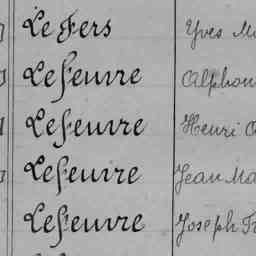 Le Fers Yves M
Lefeuvre Alphon
Lefeuvre Henri
Lefeuvre Jean Ma
Lefeuvre Joseph Fr